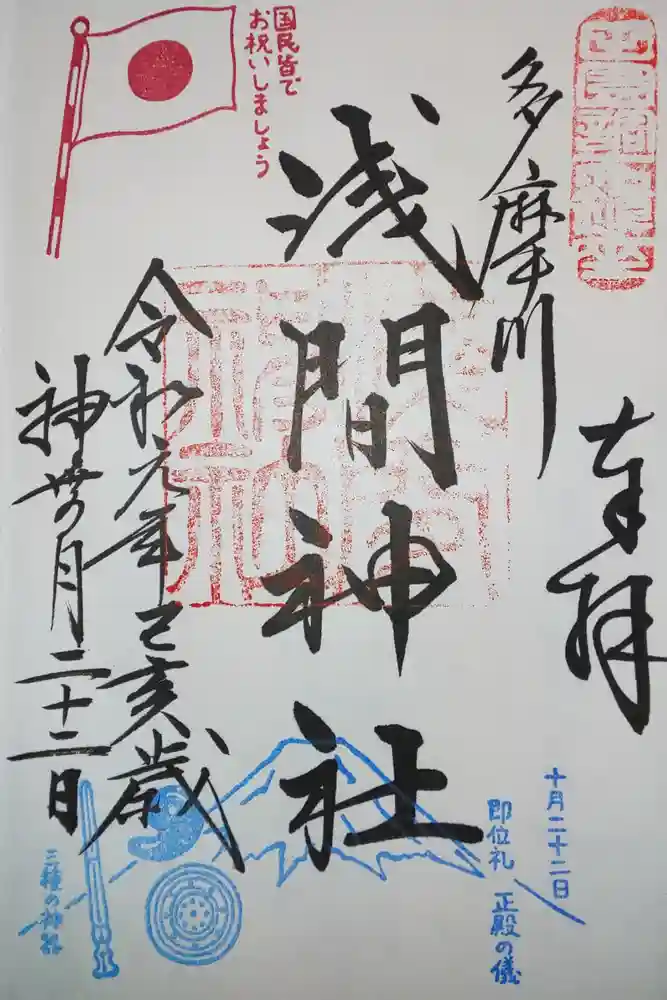 奉拝
多摩川
浅間神社
国民皆で
お祝いしましょう
令和元年己亥歳
神無月二十二日
十月二十二日
即位礼 正殿の儀
三種の神器